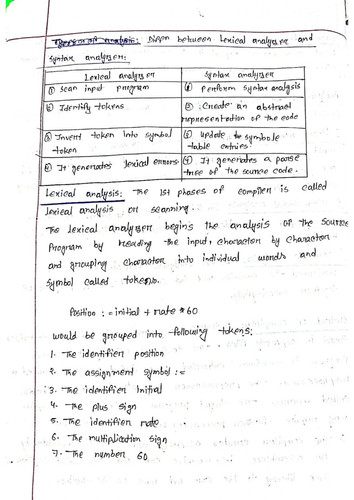 Differ between Lexical analyzer and
syntax analyzer:
Lexical analyzer
Syntax analyzer
① Scan input program
① Perform syntax analysis
② Identify tokens
② Create an abstract representation of the code
③ Insert token into symbol token
③ Update symbole table entries.
④ It generates lexical errors.
④ It generates a parse tree of the source code.
Lexical analysis: The 1st phases of compiler is called
lexical analysis or scanning.
The lexical analyzer begins the analysis of the source
program by reading the input, character by character
and grouping character into individual words and
symbol called tokens.
Position := initial + rate * 60
would be grouped into following tokens:
1. The identifier position
2. The assignment symbol :=
3. The identifier initial
4. The plus sign
5. The identifier rate
6. The multiplication sign
7. The number 60.